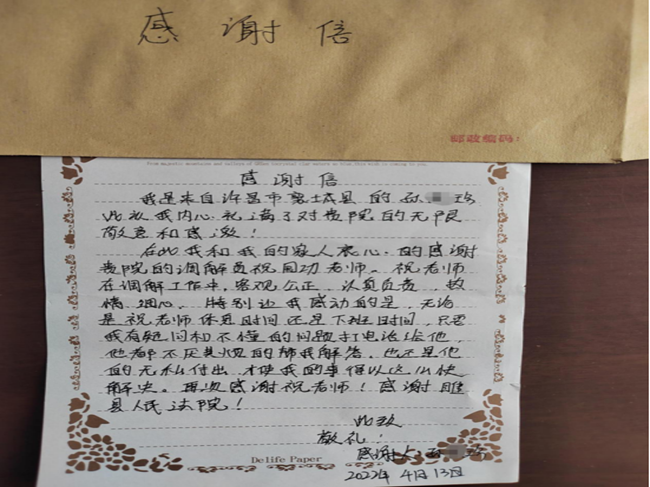 感谢信
邮政编码:
感谢信
我是来自许昌市襄城县的孙 玲
此刻我内心充满了对贵院的无限
敬意和感激!
在此我和我的家人衷心的感谢
贵院的调解员祝国功老师。祝老师
在调解工作中,客观公正,认真负责,热
情细心,特别让我感动的是,无论
是祝老师休息时间还是下班时间,只要
我有疑问和不懂的问题打电话给他,
他都不厌其烦的帮我解答。也正是他
的无私付出才使我的事得以这么快
解决。再次感谢祝老师!感谢睢
县人民法院!
此致
敬礼!
感谢人
2022年4月13日
Delife Paper